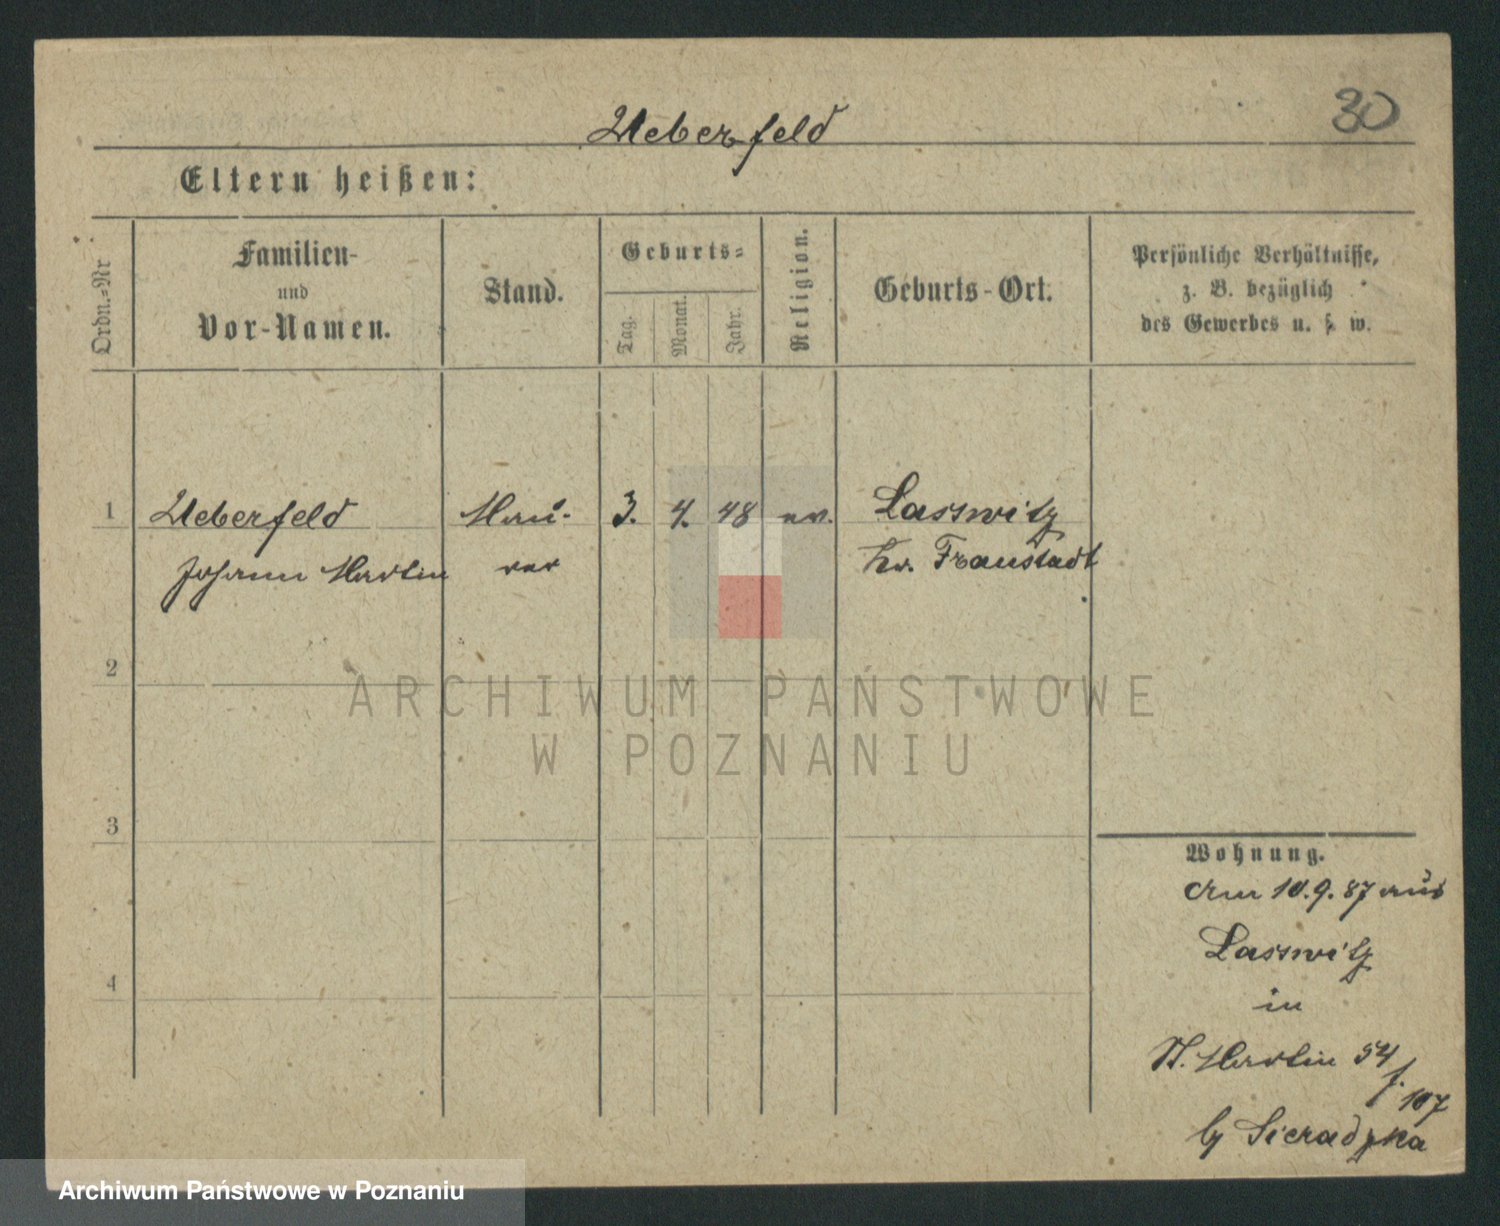 30
Ueberfeld
Eltern heißen:
Ordn.-Nr
Familien-
und
Vor-Namen.
Stand.
Geburts-
Tag.
Monat.
Jahr.
Religion.
Geburts-Ort.
Persönliche Verhältnisse,
z. B. bezüglich
des Gewerbes u. s. w.
1 Ueberfeld Mau- 3. 4. 48 ev. Lasswitz
Johann Martin rer Kr. Fraustadt
2
3
4
Wohnung.
Am 10.9.87 aus
Lasswitz
in
St. Martin 54
f. 107
by Sieradzka
ARCHIWUM PAŃSTWOWE
W POZNANIU
Archiwum Państwowe w Poznaniu